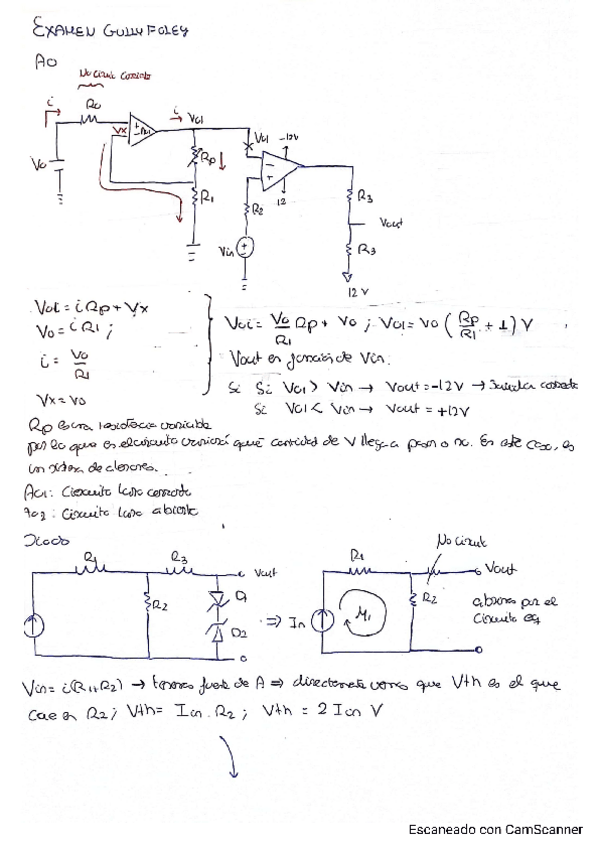 EXAMEN GULLY FOLEY
AO
No circula corriente
i
R0
Vx
i
Vo1
V0
Rp
R1
Vo1
-12V
12
R2
Vin
R3
Vout
R3
12 V
Vo1 = i Rp + Vx
V0 = i R1 ;
i = V0 / R1
Vx = V0
Vo1 = V0/R1 Rp + V0 ; Vo1 = V0 ( Rp/R1 + 1 ) V
Vout en función de Vin.
Si Si Vo1 > Vin → Vout = -12V →
Si Vo1 < Vin → Vout = +12V
Rp es una resistencia variable
por lo que es el circuito variará qué cantidad de V llega a pasar o no. En este caso, es
un sistema de
AO1: Circuito lazo cerrado
AO2: Circuito lazo abierto
Diodo
R1
R3
Vout
R2
D1
D2
⇒ In
R1
No circula
Vout
R2
M1
por el
circuito eq
Vin = i(R1+R2) → tenemos fuente de A ⇒ directamente vemos que Vth es el que
cae en R2; Vth = Iin · R2 ; Vth = 2 Iin V
Escaneado con CamScanner